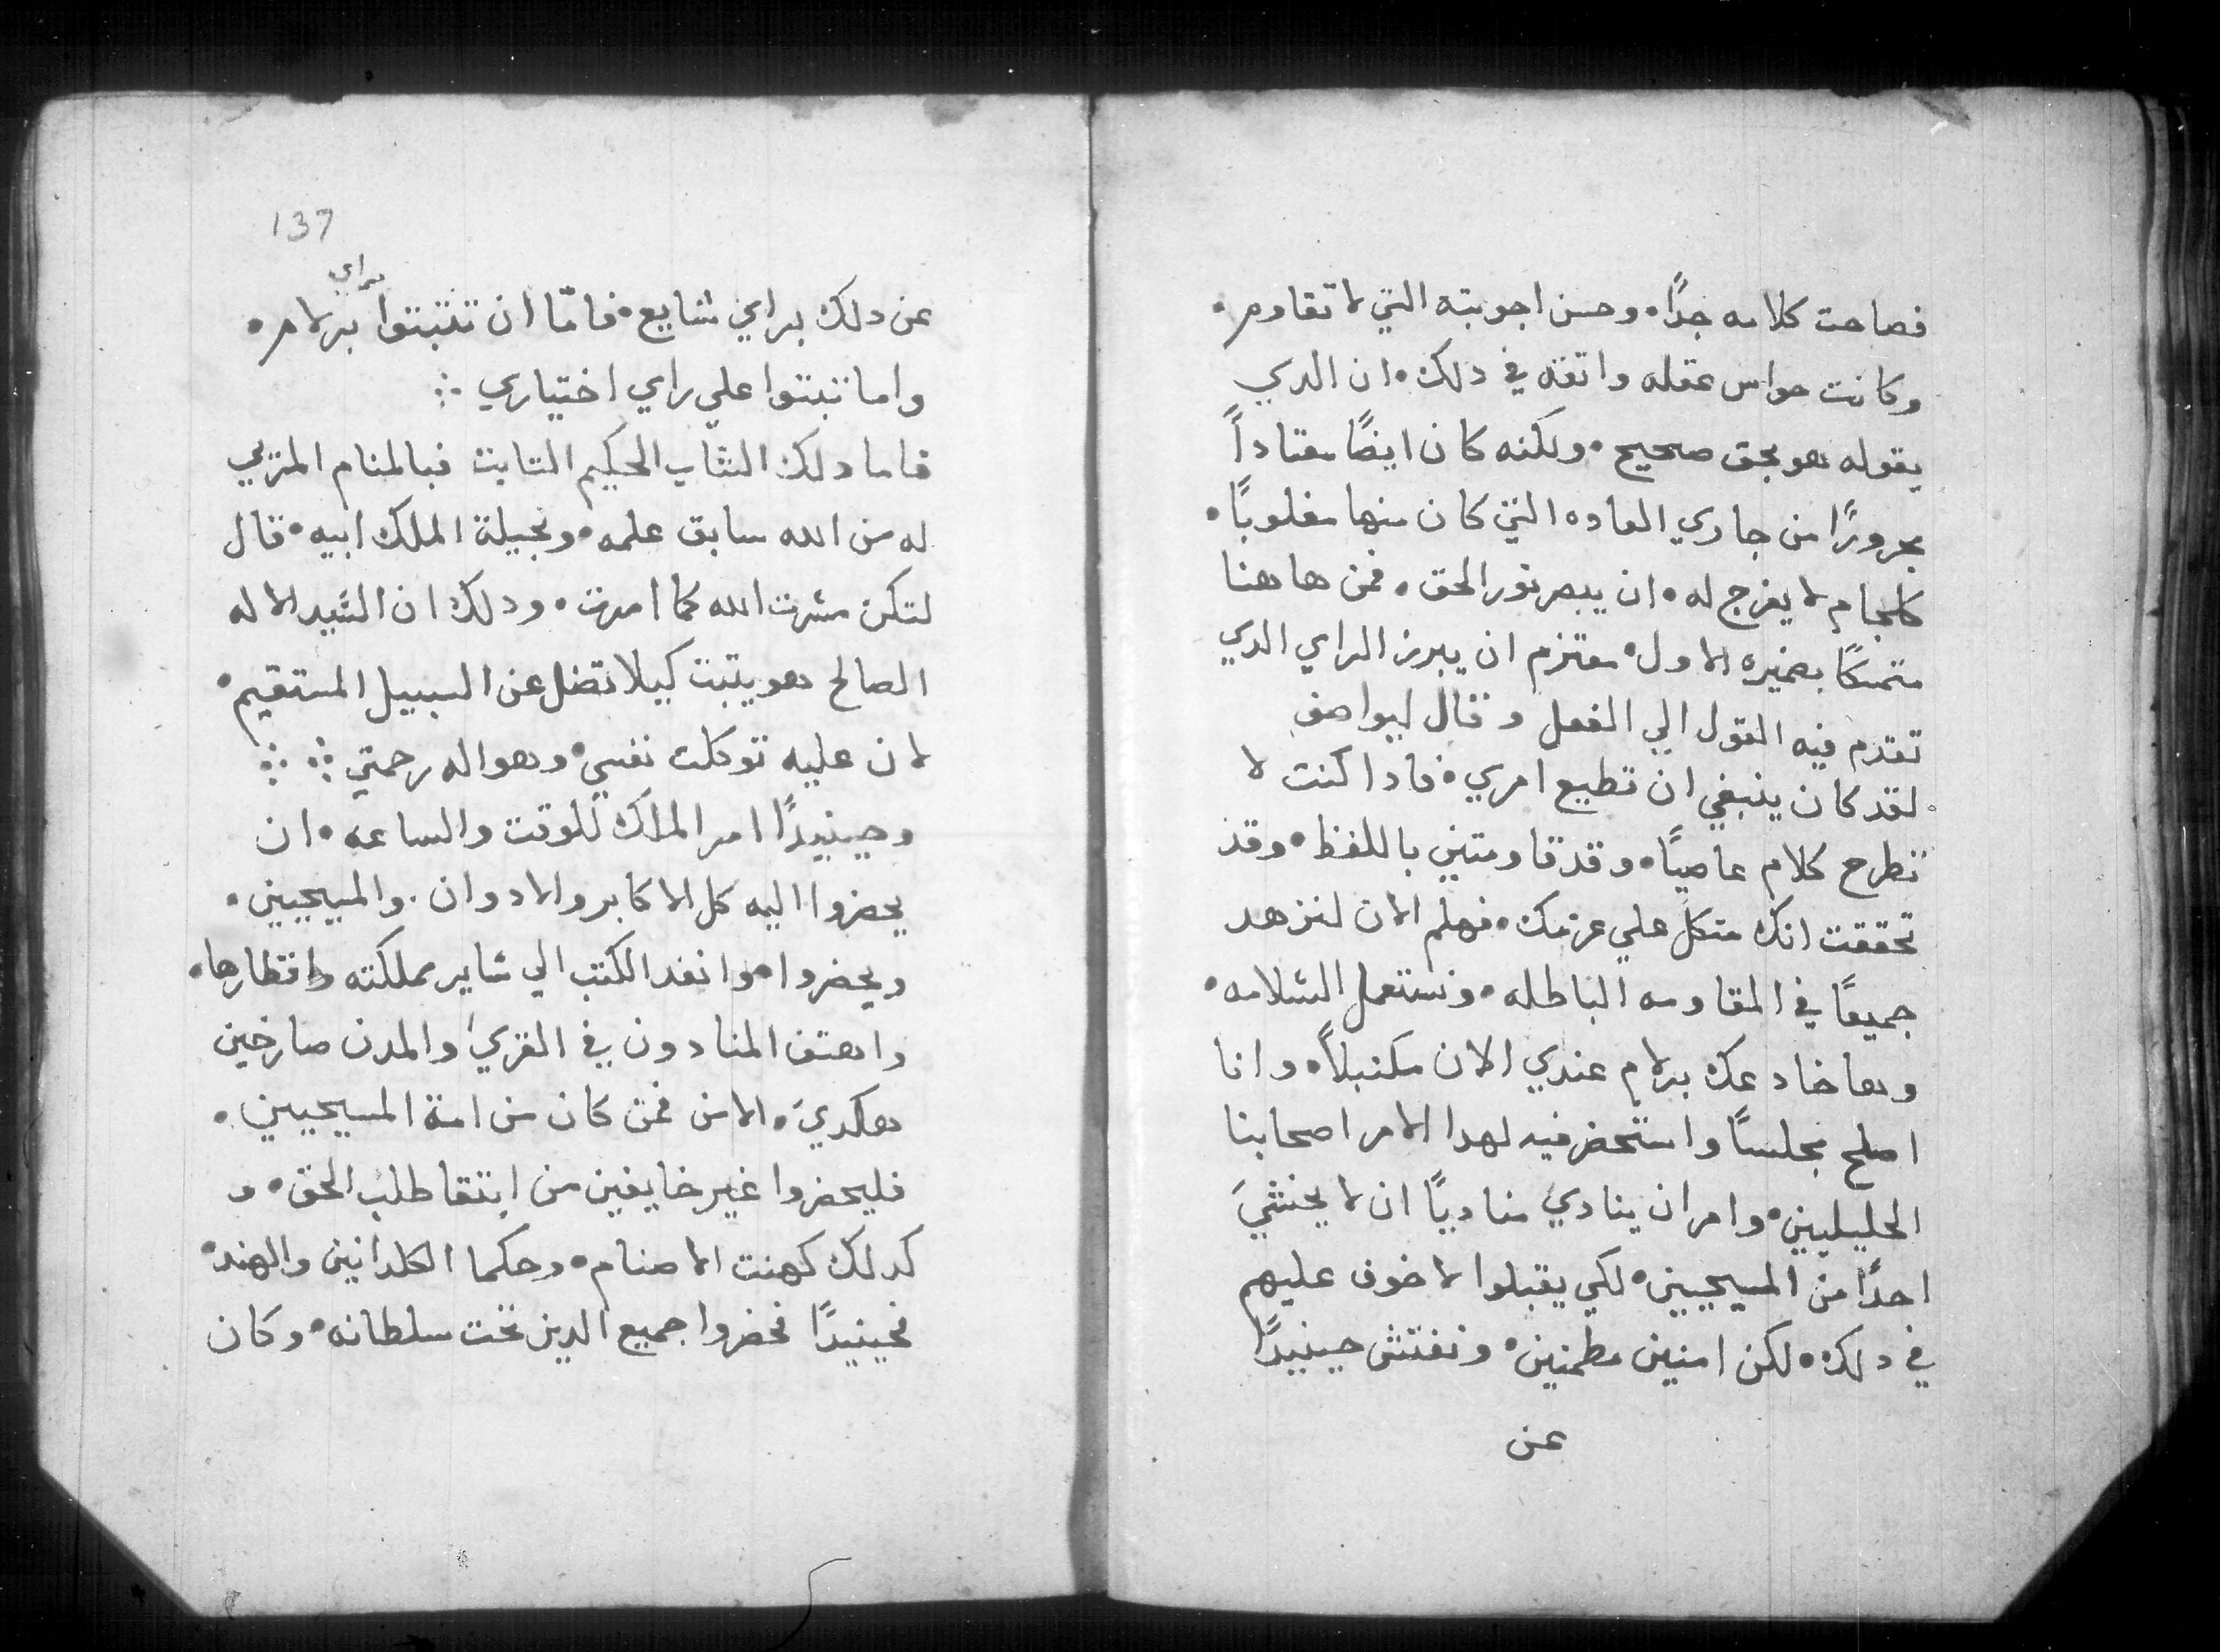 فصاحت كلامه جداً، وحسن اجوبته التي لا تقاوم،
وكانت حواس عقله واتقه في دلك، ان الدي
يقوله هو بحق صحيح، ولكنه كان ايضًا معتاداً
مجرورًا من جاري العاده التي كان منها مغلوبًا،
كلجام لا يفرج له، ان يبصر نور الحق، فمن هاهنا
متمسكًا بضميره الاول، معتزم ان يبرز الراي الدي
تقدم فيه القول الي الفعل وقال ليواصف
لقد كان ينبغي ان تطيع امري، فادا كنت لا
تطرح كلام عاصيًا، وقد قاومتني باللفظ، وقد
تحققت انك متكل علي عزمك، فهلم الان لنزهد
جميعًا في المقاومه الباطله، ونستعمل السلامه،
وها خادعك برلام عندي الان مكتبلاً، وانا
اصلح مجلسًا واستحضر فيه لهدا الامر اصحابنا
الجليليين، وامر ان ينادي مناديًا ان لا يخشيَ
احدًا من المسيحيين، لكي يقبلوا لا خوف عليهم
في دلك، لكن امنين مطمنين، ونفتش حينيدًا
عن
137
براي
عن دلك براي شايع، فامّا ان تتبتوا برلام،
واما تتبتوا علي راي اختياري ∴
فاما دلك الشاب الحكيم التابت فبالمنام المري
له من الله سابق علمه، وبحيلة الملك ابيه، قال
لتكن مشرت الله كما امرت، ودلك ان السيد الاله
الصالح هو يتبت كيلا تضل عن السبيل المستقيم،
لان عليه توكلت نفسي، وهو اله رحمتي ∴ ∴
وحينيدًا امر الملك للوقت والساعه، ان
يحضروا اليه كل الاكابر والادوان. والمسيحيين،
ويحضروا هوا نفد الكتب الي ساير مملكته واقطارها،
واهتف المنادون في القري والمدن صارخين
هكدي، الامن فمن كان من امة المسيحيين،
فليحضروا غير خايفين من ابتقا طلب الحق، و
كدلك كهنت الاصنام، وحكما الكلدانين والهند،
فحينيدًا فحضروا جميع الدين تحت سلطانه، وكان